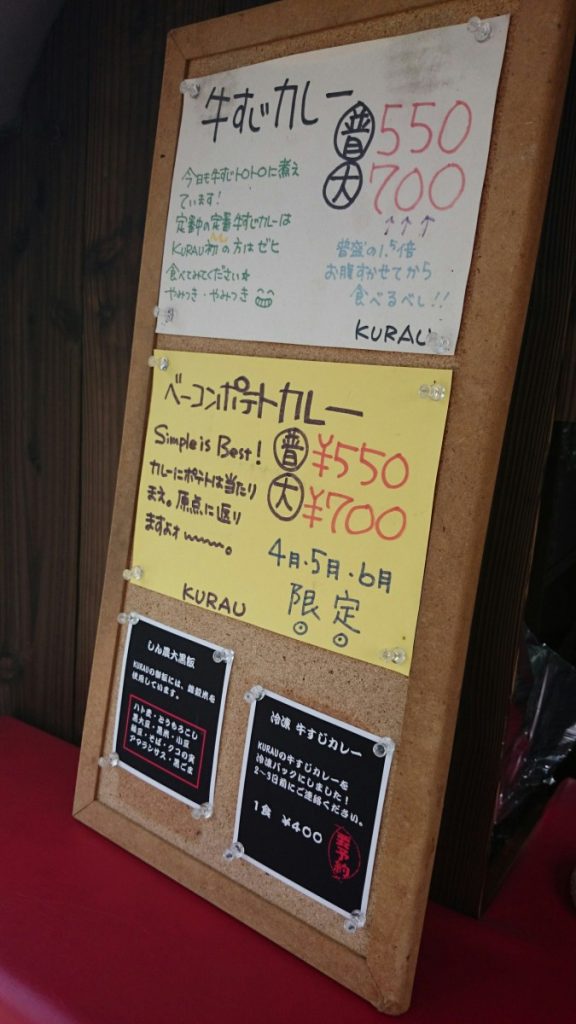 牛すじカレー
普 550
大 700
↑↑↑
今日も牛すじトロトロに煮え
ています!
定番中の定番牛すじカレーは
KURAU初の方はゼヒ
食べてみてください★
やみつき・やみつき
普盛の1.5倍
お腹すかせてから
食べるべし!!
KURAU
ベーコンポテトカレー
Simple is Best!
カレーにポテトは当たり
まえ。原点に返り
ますよォ〜〜〜。
普 ¥550
大 ¥700
4月・5月・6月
限定
KURAU
しん農大黒飯
KURAUの御飯には、雑穀米を
使用しています。
ハト麦・とうもろこし
黒大豆・黒米・小豆
緑豆・そば・クコの実
アマランサス・黒ごま
冷凍 牛すじカレー
KURAUの牛すじカレーを
冷凍パックにしました!
2〜3日前にご連絡ください。
1食 ¥400
要予約